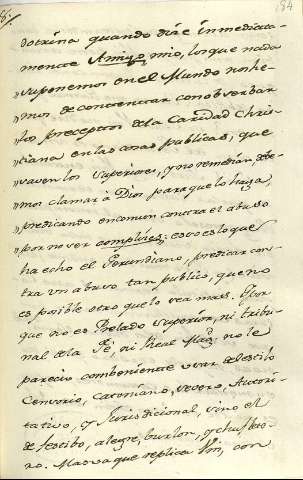 184
dotrina quando dice inmediata-
mente Amigo mio, los que nada
"suponemos en el Mundo nos he-
mos de contentar con observar
"los preceptos de la Caridad Chris-
"tiana en las cosas publicas, que
vaven los Superiores, y no remedian, debe-
mos clamar à Dios para que lo haga,
"predicando en comun contra el abuso
"por no ser complices; esto es lo que
ha echo el Gerundiano, predicar con-
tra vn abuso tan publico, que no
es posible otro que lo sea mas. Y por
que no es Prelado Superior, ni tribu-
nal de la Fè, ni Real Mag. no le
parecio combeniente usar del estilo
Censorio, catoniano, severo, Autori-
tativo, y Jurisdicional, sino el
de festibo, alegre, burlon, y chuflete-
ro. Mas va que replica Vm, con